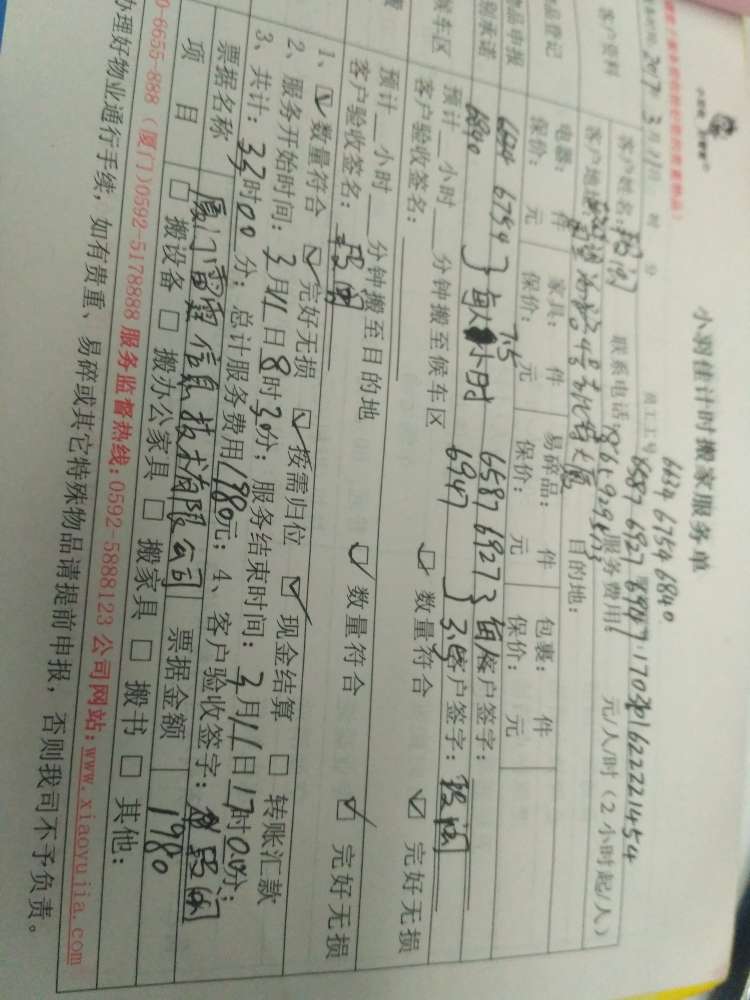 小羽佳计时搬家服务单
2017 3月11日 时 分
员工工号
6634 6754 6840
6587 6927 6947
客户资料
客户姓名:
联系电话:
服务费用: 元/人/时（2小时起/人）
客户地址:
目的地:
物品登记
电器: 件
家具: 件
易碎品: 件
包裹: 件
物品申报
保价: 元
保价: 元
保价: 元
保价: 元
别承诺
6634 6754
6840
每人 7.5小时
6587 6927
6947
客户签字:
客户签字:
候车区
预计__小时__分钟搬至候车区
数量符合
完好无损
客户验收签名:
预计__小时__分钟搬至目的地
数量符合
完好无损
客户验收签名:
1、数量符合 完好无损 按需归位 现金结算 转账汇款
2、服务开始时间: 3月11日8时30分; 服务结束时间: 3月11日17时00分;
3、共计: 33时00分; 总计服务费用1980元; 4、客户验收签字:
票据名称
厦门雷霆信息技术有限公司
票据金额
1980
项 目
搬设备 搬办公家具 搬家具 搬书 其他:
0-6655-888（厦门)0592-5178888 服务监督热线:0592-5888123 公司网站:www.xiaoyujia.com
办理好物业通行手续, 如有贵重、易碎或其它特殊物品请提前申报, 否则我司不予负责。